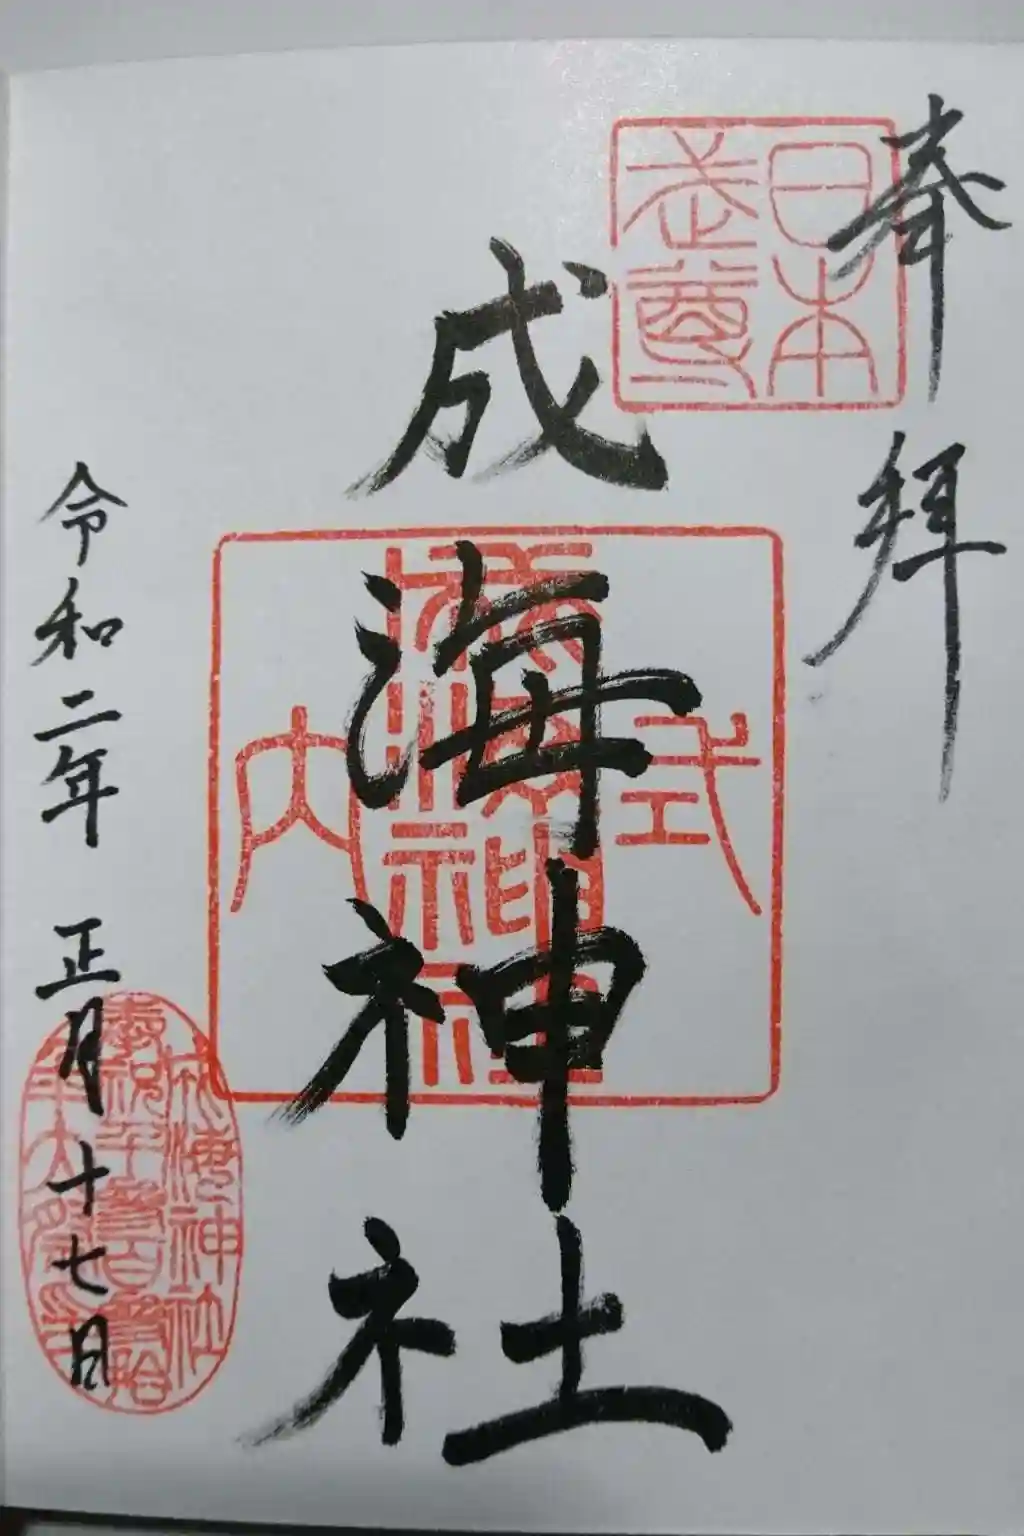 奉拝
日本
武尊
成海神社
式
成海神社
内
令和二年 正月十七日
成海神社